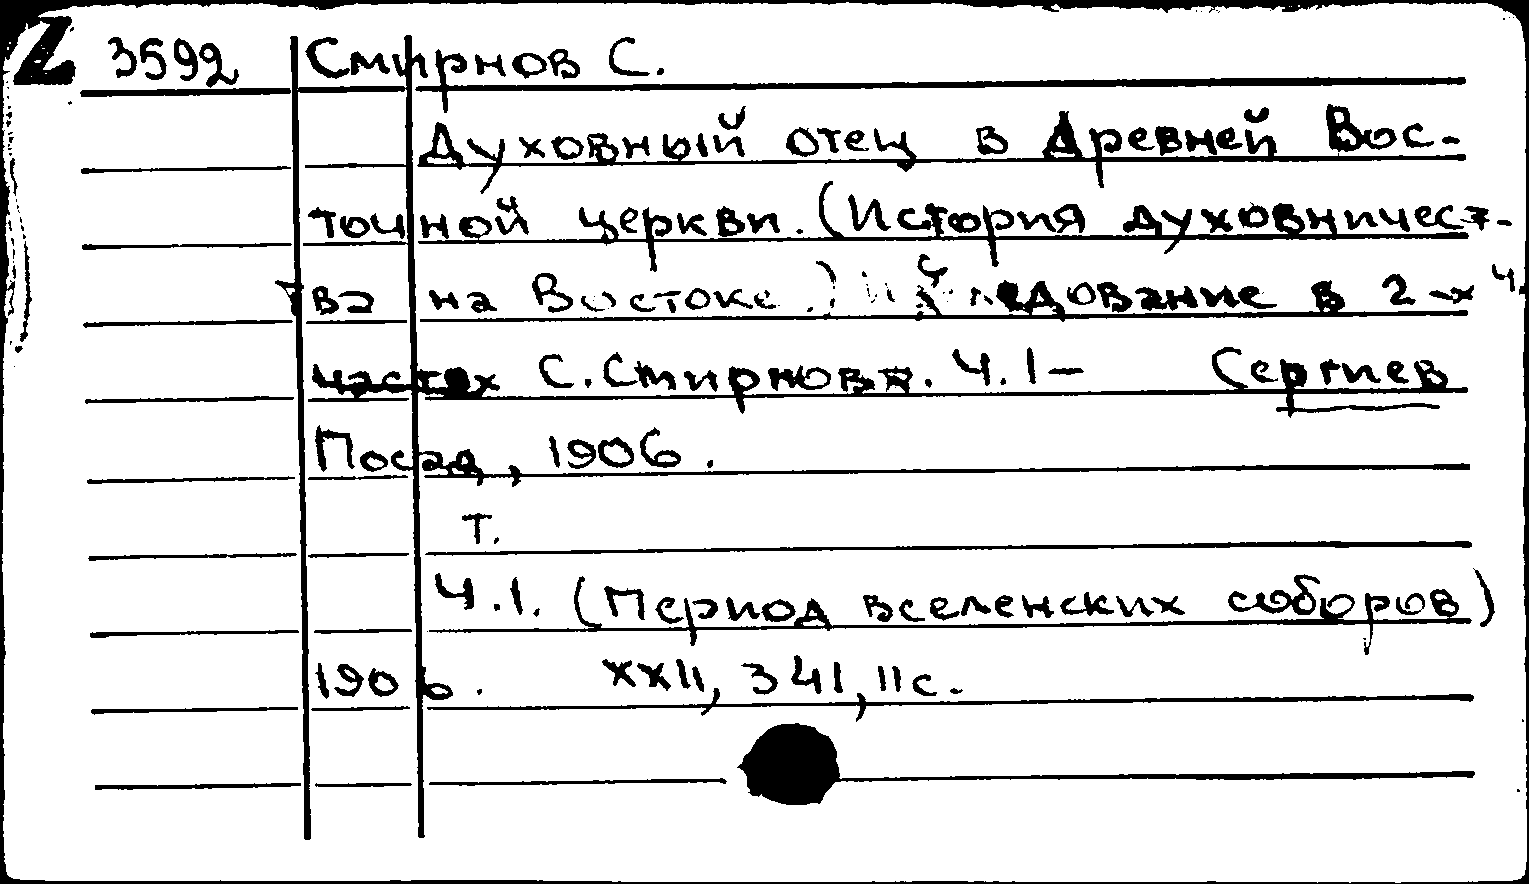 Z 3592 Смирнов С.
Духовный отец в Древней Вос-
точной церкви. (История духовничест-
ва на Востоке.) Исследование в 2-х ч.
частях С. Смирнова. Ч. I — Сергиев
Посад, 1906.
т.
Ч. I. (Период вселенских соборов)
1906. XXII, 341, II с.